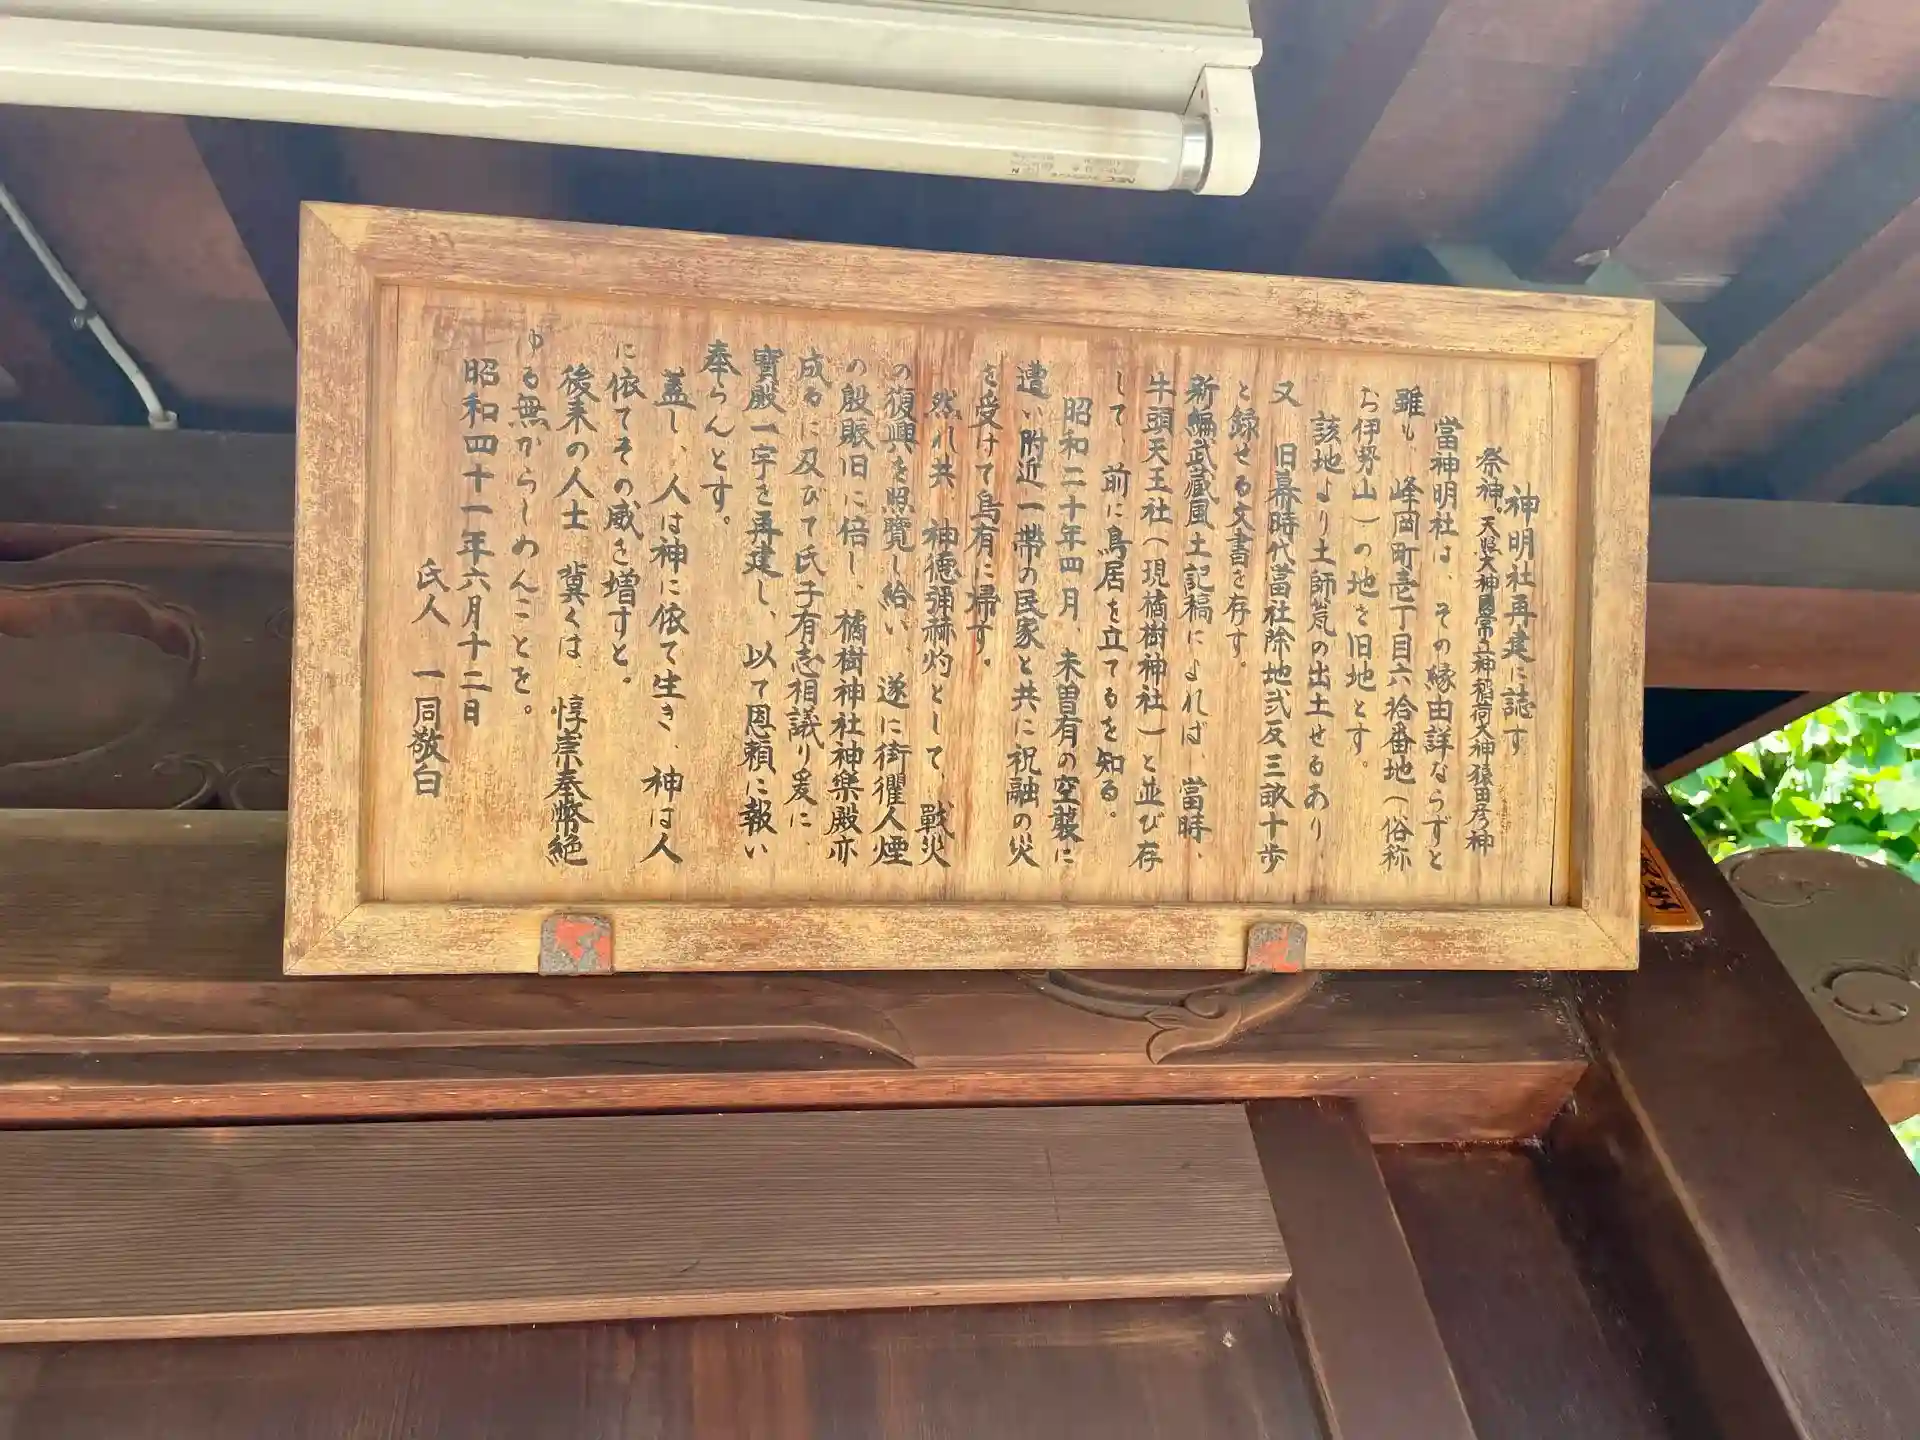 神明社再建に誌す
祭神。天照大神國常立神稲荷大神猿田彦神
當神明社は、その縁由詳ならずと
雖も、峰岡町壱丁目六拾番地（俗称
お伊勢山）の地を旧地とす。
該地より土師器の出土せるあり、
又　旧幕時代當社除地弐反三畝十歩
と録せる文書を存す。
新編武蔵風土記稿によれば、當時、
牛頭天王社（現橘樹神社）と並び存
して、前に鳥居を立てるを知る。
昭和二十年四月、未曽有の空襲に
遭い附近一帯の民家と共に祝融の災
を受けて烏有に帰す。
然れ共、神徳彌赫灼として、戰災
の復興を照覽し給い、遂に街衢人煙
の殷賑旧に倍し、橘樹神社神樂殿亦
成るに及びて氏子有志相議り爰に、
寶殿一宇を再建し、以て恩頼に報い
奉らんとす。
蓋し、人は神に依て生き、神は人
に依てその威を増すと。
後来の人士　冀くは、惇崇奉幣絶
ゆる無からしめんことを。
昭和四十一年六月十二日
氏人　一同敬白
NEC